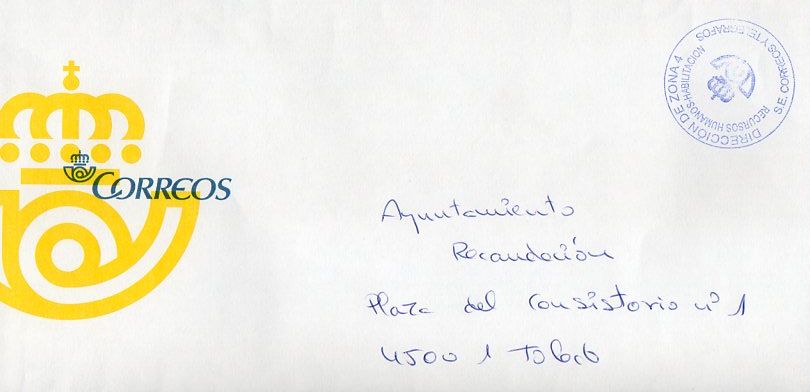 CORREOS
DIRECCION DE ZONA 4
S.E. CORREOS Y TELEGRAFOS
RECURSOS HUMANOS-HABILITACION
Ayuntamiento
Recaudación
Plaza del Consistorio nº 1
45001 Toledo